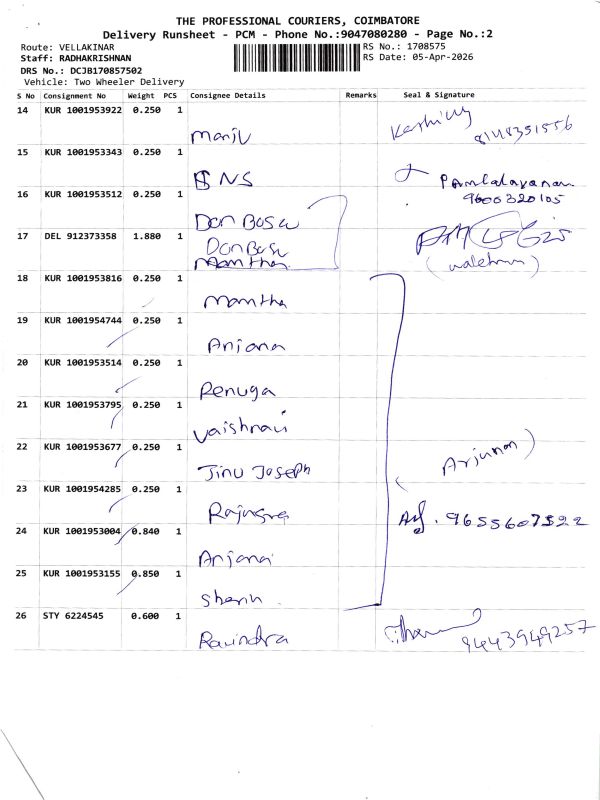 THE PROFESSIONAL COURIERS, COIMBATORE
Delivery Runsheet - PCM - Phone No.:9047080280 - Page No.:2
Route: VELLAKINAR
RS No.: 1708575
Staff: RADHAKRISHNAN
RS Date: 05-Apr-2026
DRS No.: DCJB170857502
Vehicle: Two Wheeler Delivery
S No Consignment No Weight PCS Consignee Details Remarks Seal & Signature
14 KUR 1001953922 0.250 1
Manju
8148351556
15 KUR 1001953343 0.250 1
SNS
9600320105
16 KUR 1001953512 0.250 1
Don Bosco
17 DEL 912373358 1.880 1
Don Bosco
Mamtha
18 KUR 1001953816 0.250 1
Mamtha
19 KUR 1001954744 0.250 1
Anjana
20 KUR 1001953514 0.250 1
Renuga
21 KUR 1001953795 0.250 1
Vaishnavi
22 KUR 1001953677 0.250 1
Jinu Joseph
(Arjunan)
23 KUR 1001954285 0.250 1
24 KUR 1001953004 0.840 1
Anjana
25 KUR 1001953155 0.850 1
Sherin
26 STY 6224545 0.600 1
Ravindra
9443949257